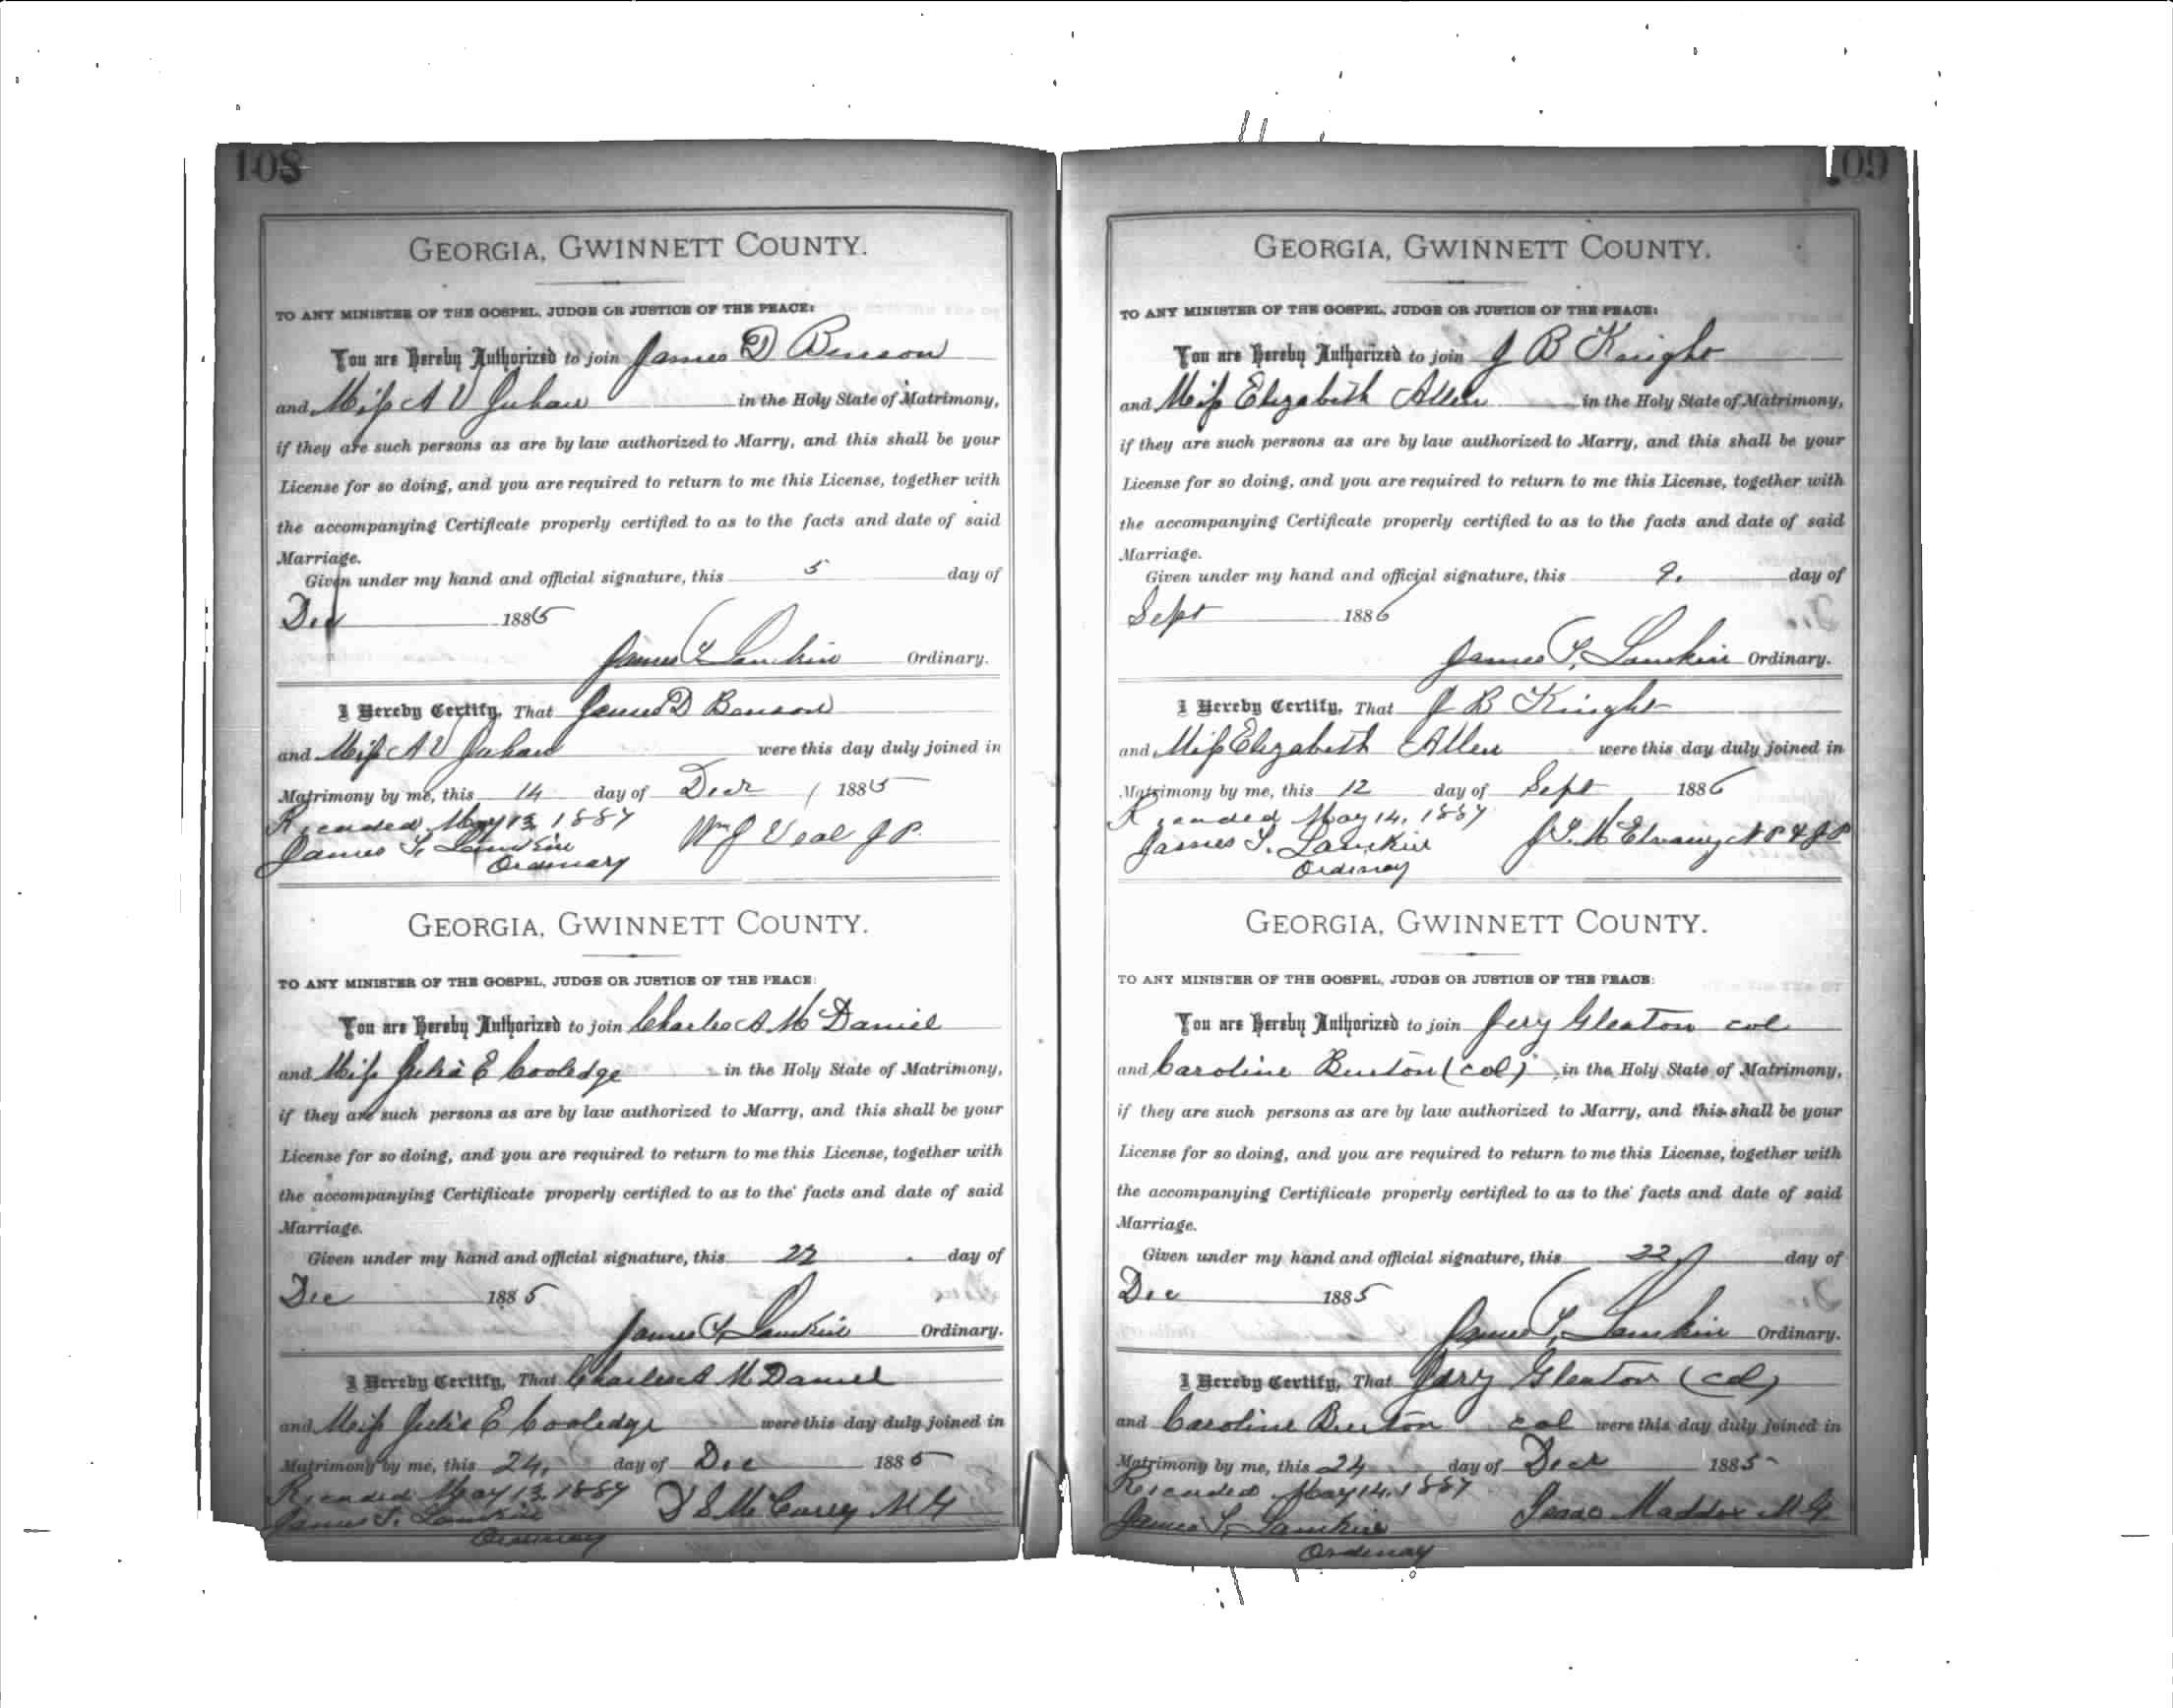 108
GEORGIA, GWINNETT COUNTY.
TO ANY MINISTER OF THE GOSPEL, JUDGE OR JUSTICE OF THE PEACE:
You are Hereby Authorized to join James D Benson
and Miss A V Juhan in the Holy State of Matrimony,
if they are such persons as are by law authorized to Marry, and this shall be your
License for so doing, and you are required to return to me this License, together with
the accompanying Certificate properly certified to as to the facts and date of said
Marriage.
Given under my hand and official signature, this 5 day of
Dec 1885
James T. Lamkin Ordinary.
I Hereby Certify, That James D Benson
and Miss A V Juhan were this day duly joined in
Matrimony by me, this 14 day of Decr 1885
Recorded May 13, 1887
James T. Lamkin Wm J Veal J P.
Ordinary
GEORGIA, GWINNETT COUNTY.
TO ANY MINISTER OF THE GOSPEL, JUDGE OR JUSTICE OF THE PEACE:
You are Hereby Authorized to join Charles A McDaniel
and Miss Julia E Cooledge in the Holy State of Matrimony,
if they are such persons as are by law authorized to Marry, and this shall be your
License for so doing, and you are required to return to me this License, together with
the accompanying Certifiicate properly certified to as to the facts and date of said
Marriage.
Given under my hand and official signature, this 22 day of
Dec 1885
James T. Lamkin Ordinary.
I Hereby Certify, That Charles A McDaniel
and Miss Julia E Cooledge were this day duly joined in
Matrimony by me, this 24, day of Dec 1885
Recorded May 13, 1887
James T. Lamkin S McCurry M G
Ordinary
109
GEORGIA, GWINNETT COUNTY.
TO ANY MINISTER OF THE GOSPEL, JUDGE OR JUSTICE OF THE PEACE:
You are Hereby Authorized to join J B Knight
and Miss Elizabeth Allen in the Holy State of Matrimony,
if they are such persons as are by law authorized to Marry, and this shall be your
License for so doing, and you are required to return to me this License, together with
the accompanying Certificate properly certified to as to the facts and date of said
Marriage.
Given under my hand and official signature, this 9. day of
Sept 1886
James T. Lamkin Ordinary.
I Hereby Certify, That J B Knight
and Miss Elizabeth Allen were this day duly joined in
Matrimony by me, this 12 day of Sept 1886
Recorded May 14, 1887
James T. Lamkin McElvany N P & J P
Ordinary
GEORGIA, GWINNETT COUNTY.
TO ANY MINISTER OF THE GOSPEL, JUDGE OR JUSTICE OF THE PEACE:
You are Hereby Authorized to join Jery Gleaton col
and Caroline Burton (col) in the Holy State of Matrimony,
if they are such persons as are by law authorized to Marry, and this shall be your
License for so doing, and you are required to return to me this License, together with
the accompanying Certifiicate properly certified to as to the facts and date of said
Marriage.
Given under my hand and official signature, this 22 day of
Dec 1885
James T. Lamkin Ordinary.
I Hereby Certify, That Jery Gleaton (col)
and Caroline Burton col were this day duly joined in
Matrimony by me, this 24 day of Decr 1885
Recorded May 14, 1887
James T. Lamkin Isaac Maddox M G.
Ordinary